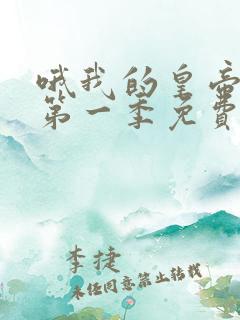 哦我的皇帝
第一季免費
李捷
未经同意禁止转载